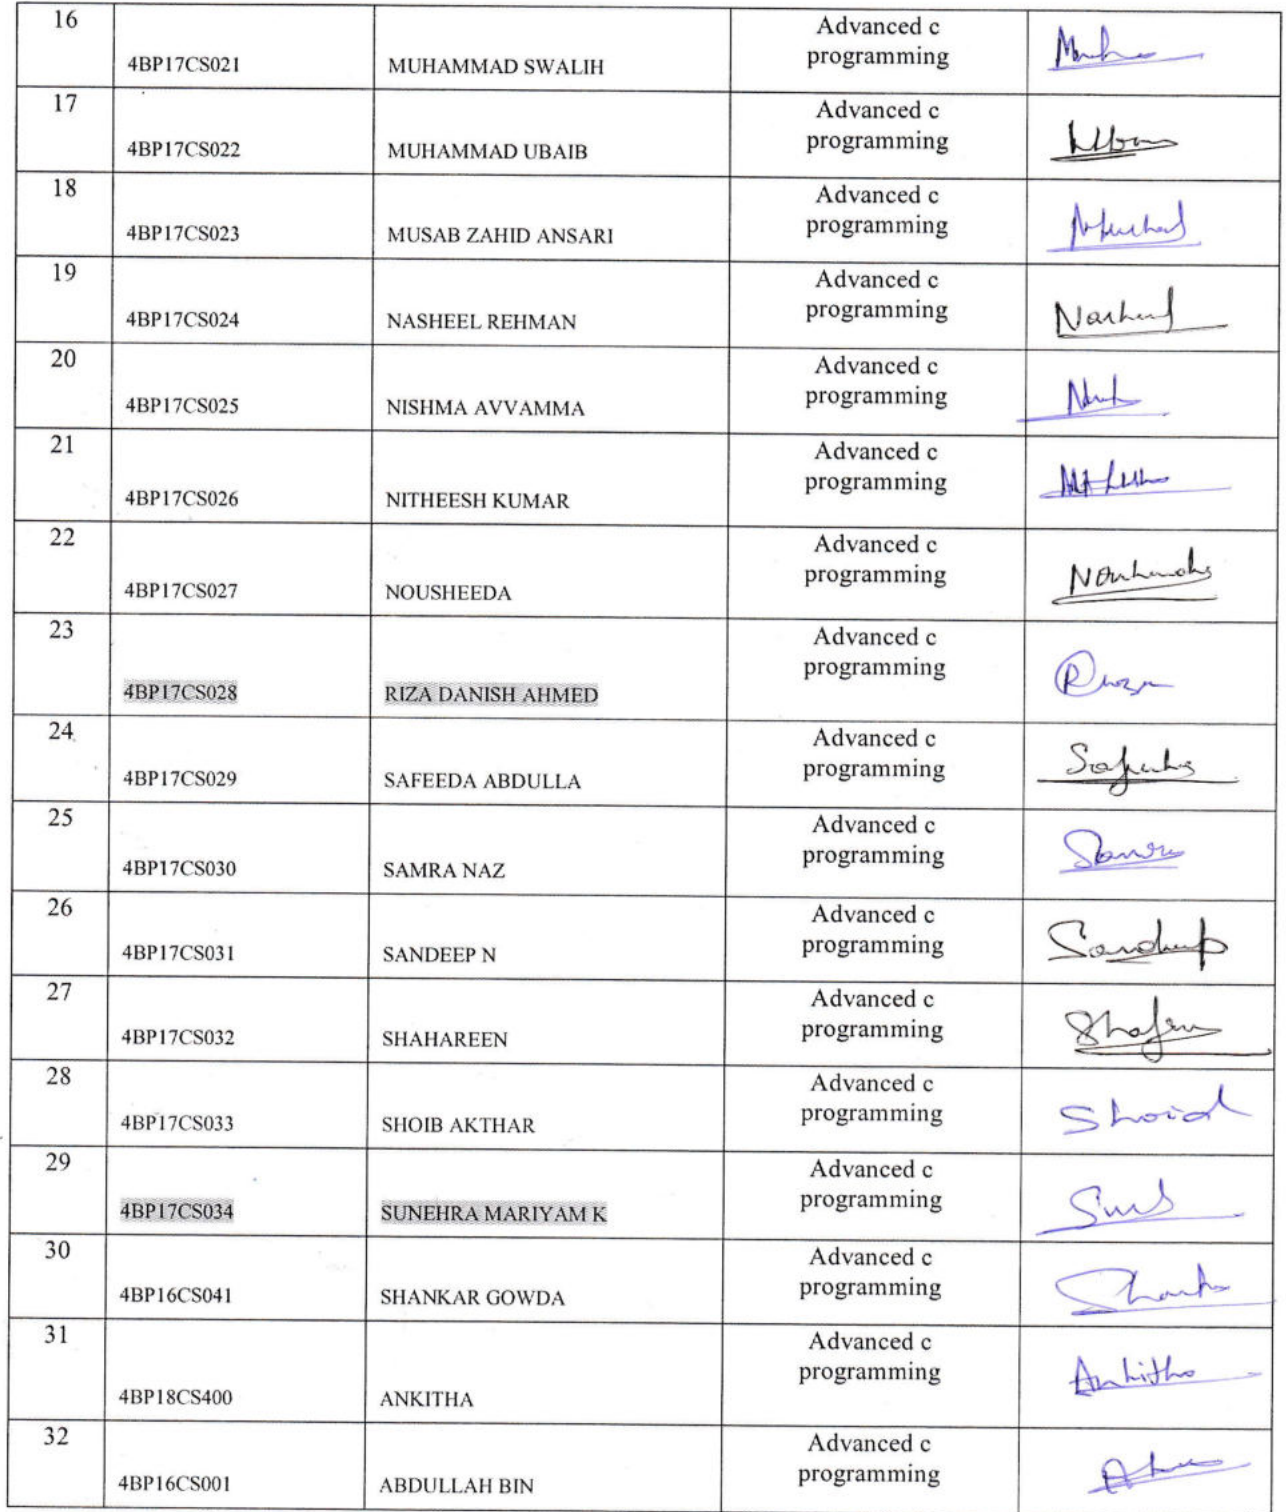 16 4BP17CS021 MUHAMMAD SWALIH Advanced c
programming
17 4BP17CS022 MUHAMMAD UBAIB Advanced c
programming
18 4BP17CS023 MUSAB ZAHID ANSARI Advanced c
programming
19 4BP17CS024 NASHEEL REHMAN Advanced c
programming
20 4BP17CS025 NISHMA AVVAMMA Advanced c
programming
21 4BP17CS026 NITHEESH KUMAR Advanced c
programming
22 4BP17CS027 NOUSHEEDA Advanced c
programming
23 4BP17CS028 RIZA DANISH AHMED Advanced c
programming
24 4BP17CS029 SAFEEDA ABDULLA Advanced c
programming
25 4BP17CS030 SAMRA NAZ Advanced c
programming
26 4BP17CS031 SANDEEP N Advanced c
programming Sandeep
27 4BP17CS032 SHAHAREEN Advanced c
programming
28 4BP17CS033 SHOIB AKTHAR Advanced c
programming
29 4BP17CS034 SUNEHRA MARIYAM K Advanced c
programming
30 4BP16CS041 SHANKAR GOWDA Advanced c
programming
31 4BP18CS400 ANKITHA Advanced c
programming Ankitha
32 4BP16CS001 ABDULLAH BIN Advanced c
programming